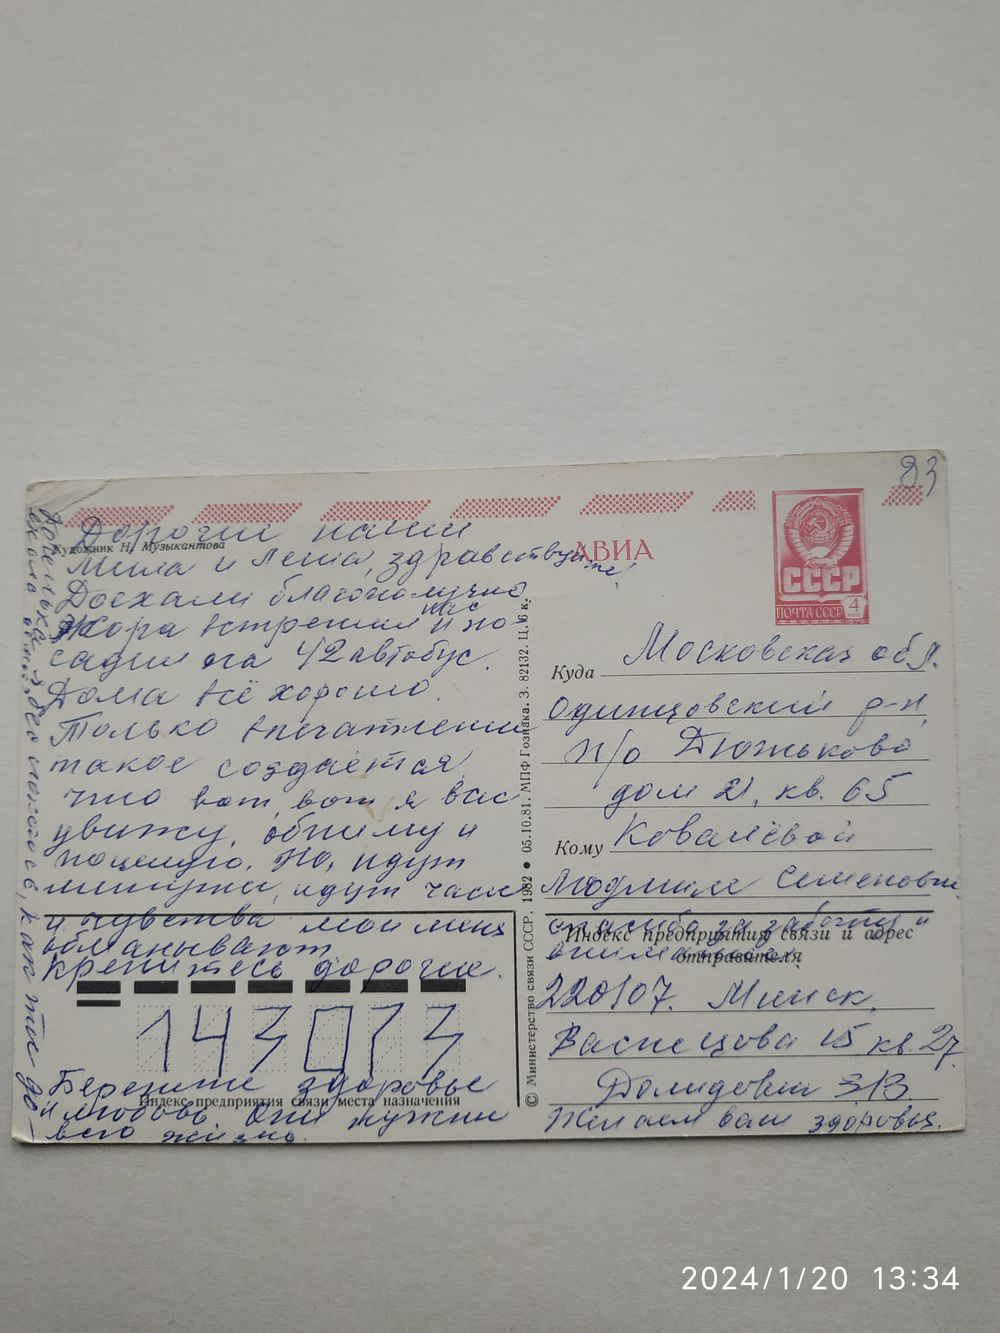 83
Художник Н. Музыкантова
АВИА
СССР
ПОЧТА СССР 4
1976
Дорогие наши
Мила и Леша, здравствуйте!
Доехали благополучно
Жора встретил нас и по-
садил на 42 автобус.
Дома всё хорошо.
Только впечатление
такое создаётся,
что вот, вот я Вас
увижу, обниму и
поцелую. Но, идут
минуты, идут часы
и чувства мои меня
обманывают.
крепитесь дорогие.
Берегите здоровье
и любовь они нужны
всю жизнь.
Куда Московская обл.
Одинцовский р-н,
п/о Дютьково
дом 21, кв. 65
Кому Ковалёвой
Людмиле Семеновне
спасибо за заботу и
Индекс предприятия связи и адрес
отправителя
220107. Минск,
Васнецова 15 кв. 27
Долидович З.В.
Желаем вам здоровья.
143073
Индекс предприятия связи места назначения
© Министерство связи СССР, 1982 • 05.10.81. МПФ Гознака. З. 82132. Ц. 6 к.
2024/1/20 13:34